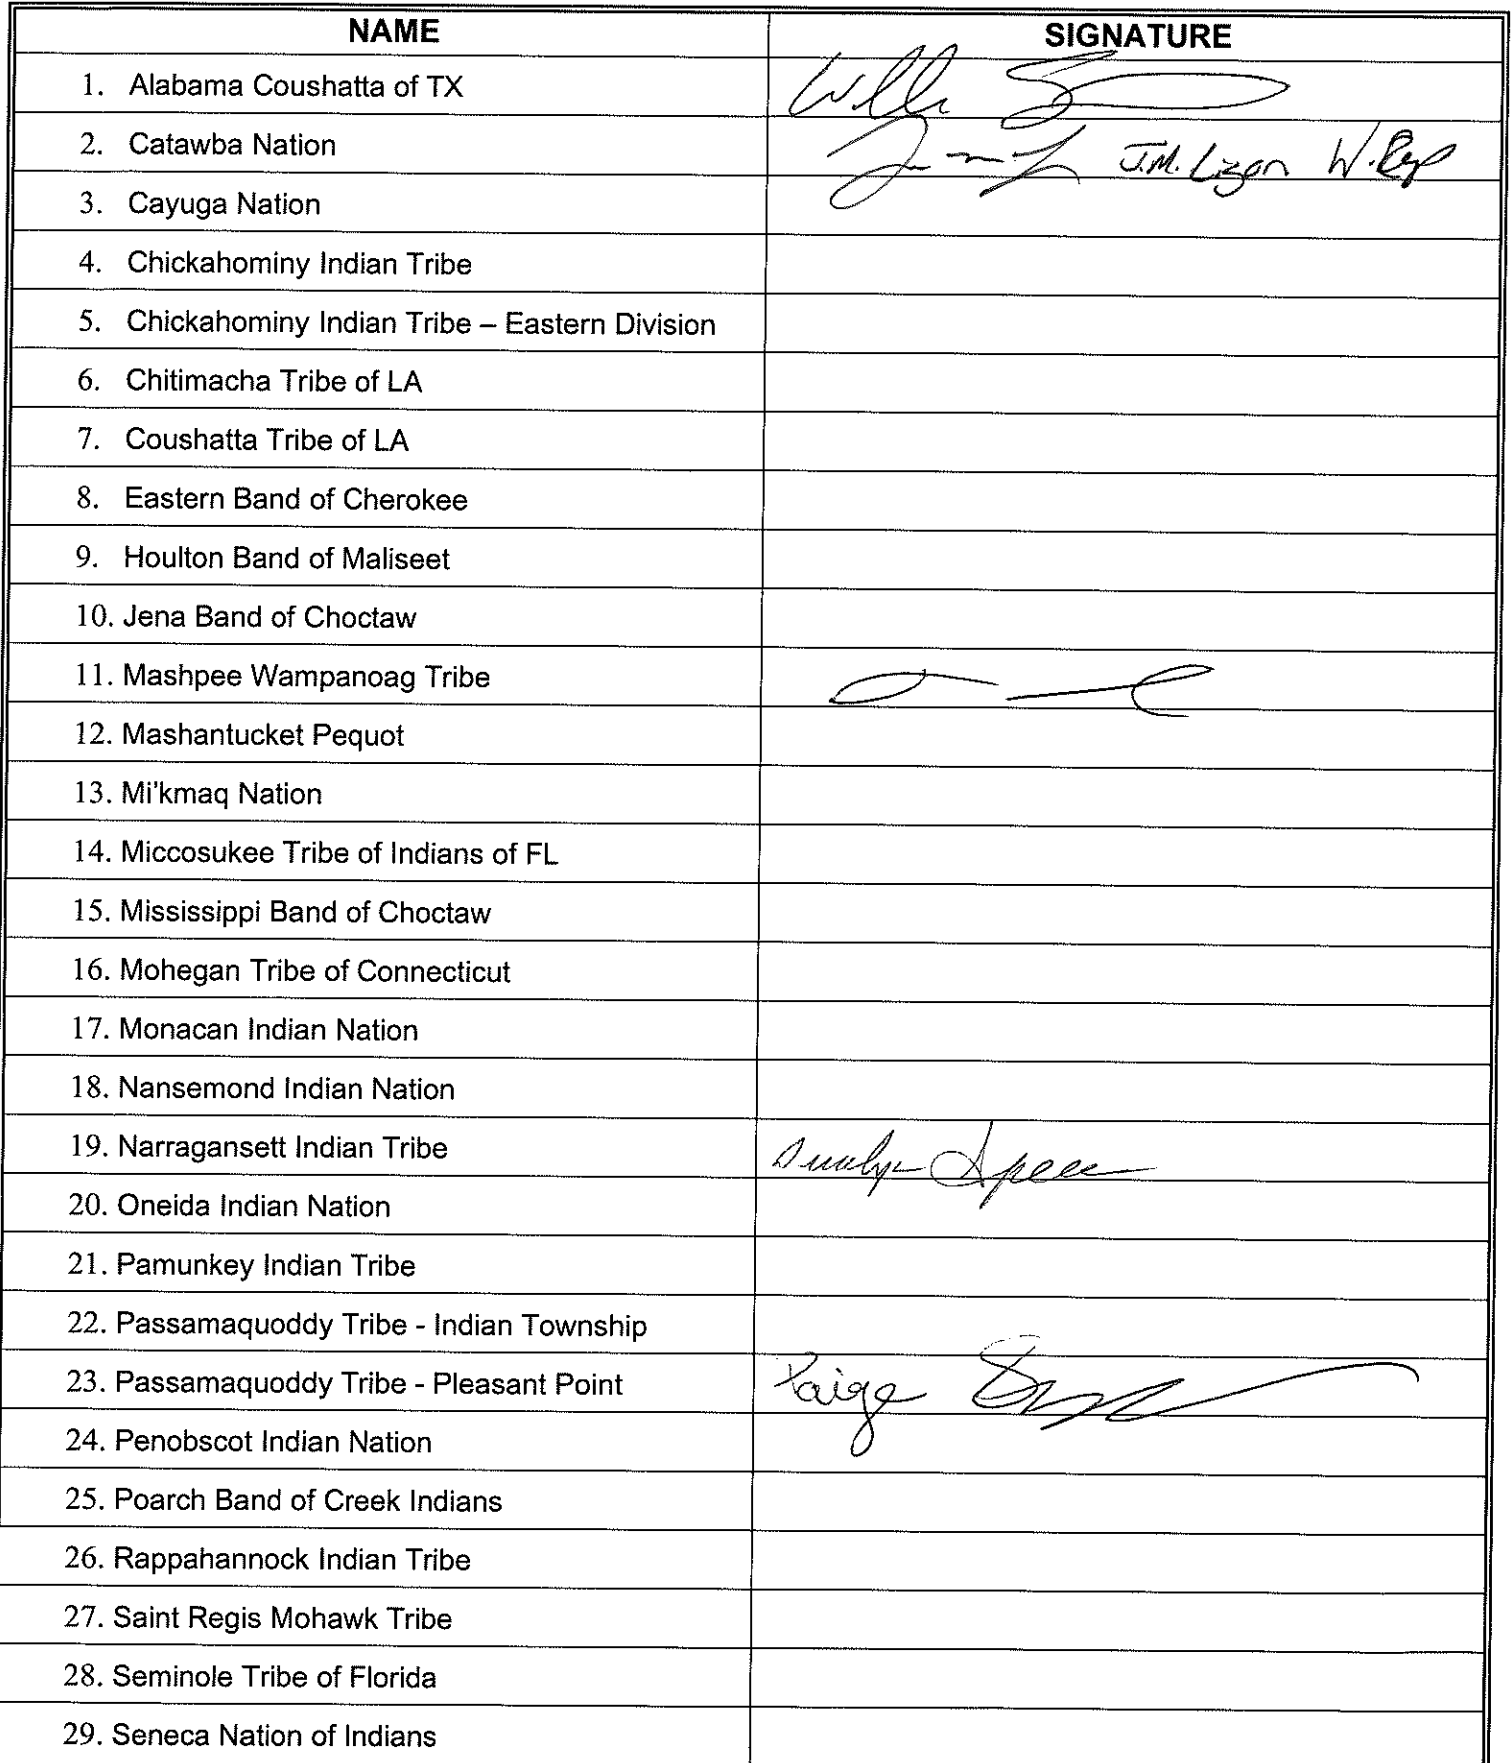 NAME SIGNATURE
1. Alabama Coushatta of TX
2. Catawba Nation J.M. Lizon W.Rep
3. Cayuga Nation
4. Chickahominy Indian Tribe
5. Chickahominy Indian Tribe – Eastern Division
6. Chitimacha Tribe of LA
7. Coushatta Tribe of LA
8. Eastern Band of Cherokee
9. Houlton Band of Maliseet
10. Jena Band of Choctaw
11. Mashpee Wampanoag Tribe
12. Mashantucket Pequot
13. Mi'kmaq Nation
14. Miccosukee Tribe of Indians of FL
15. Mississippi Band of Choctaw
16. Mohegan Tribe of Connecticut
17. Monacan Indian Nation
18. Nansemond Indian Nation
19. Narragansett Indian Tribe
20. Oneida Indian Nation
21. Pamunkey Indian Tribe
22. Passamaquoddy Tribe - Indian Township
23. Passamaquoddy Tribe - Pleasant Point Paige
24. Penobscot Indian Nation
25. Poarch Band of Creek Indians
26. Rappahannock Indian Tribe
27. Saint Regis Mohawk Tribe
28. Seminole Tribe of Florida
29. Seneca Nation of Indians